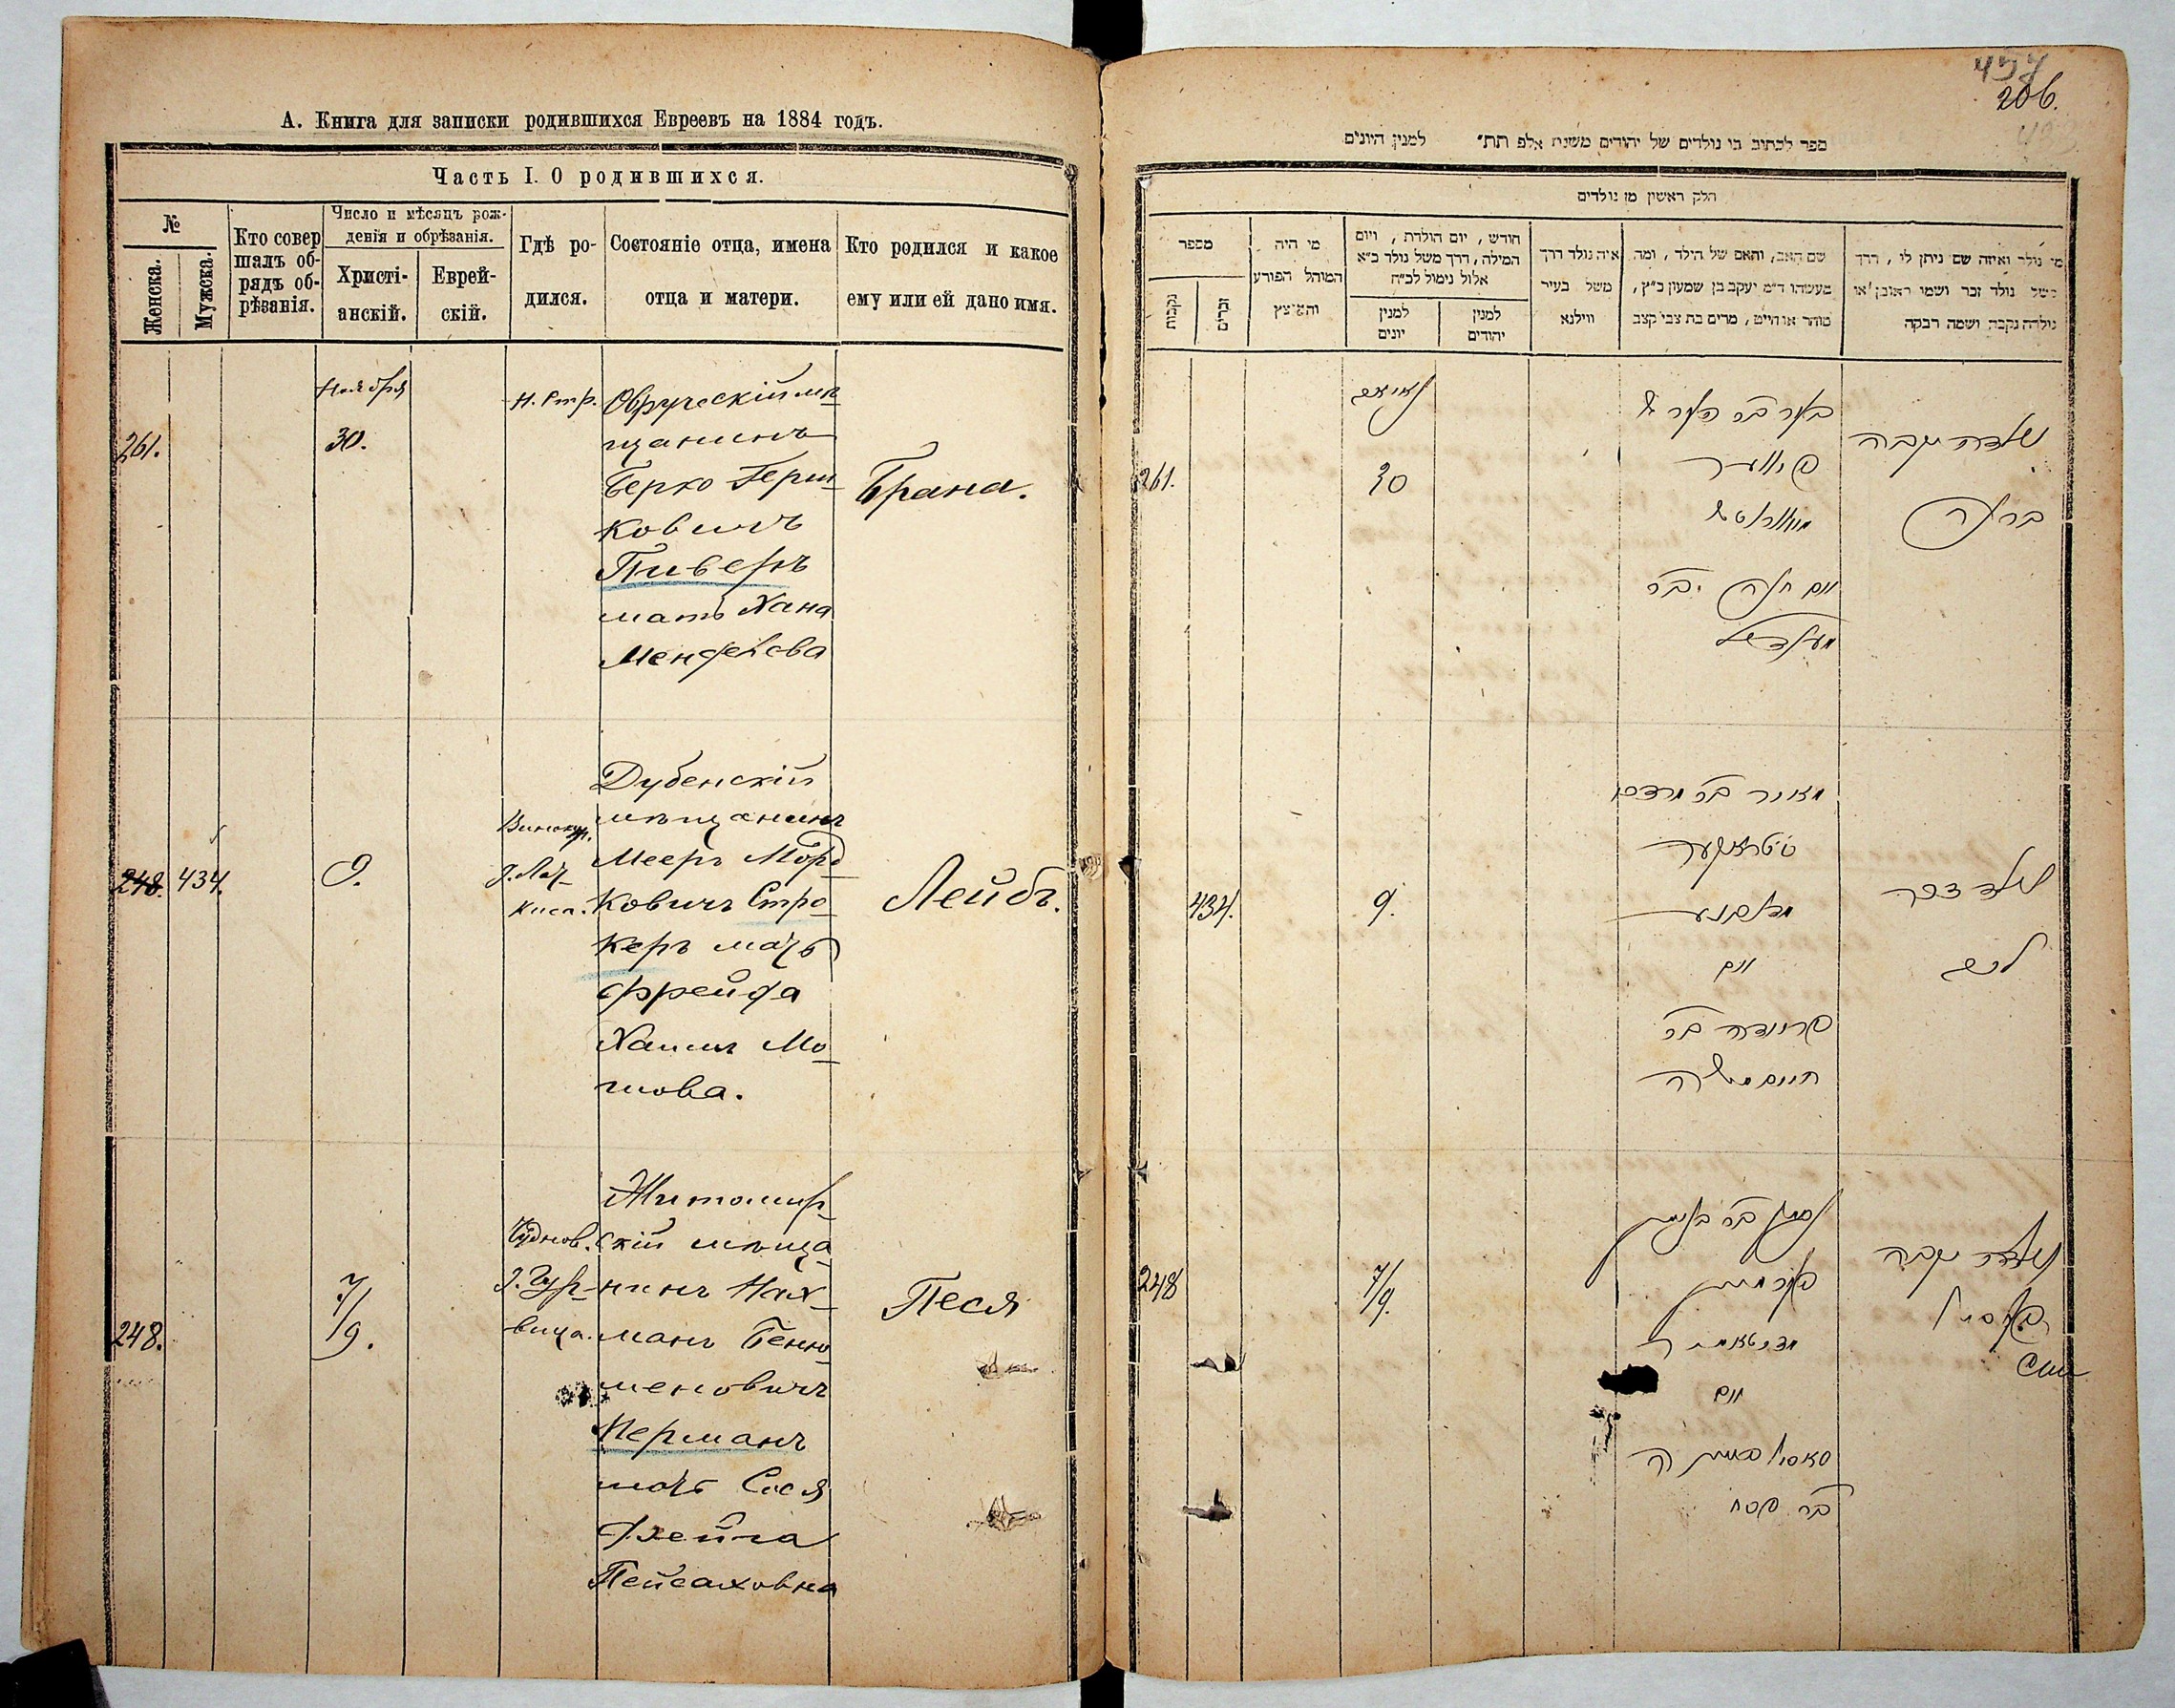 А. Книга для записки родившихся Евреевъ на 1884 годъ.
Часть I. О родившихся.
№
Женска.
Мужска.
Кто совер
шалъ об-
рядъ об-
рѣзанія.
Число и мѣсяцъ рож-
денія и обрѣзанія.
Христі-
анскій.
Еврей-
скій.
Гдѣ ро-
дился.
Состояніе отца, имена
отца и матери.
Кто родился и какое
ему или ей дано имя.
261.
Ноября
30.
Н. Стр.
Овручскій мѣ-
щанинъ
Берко Герш-
ковичъ
Пиверъ
мать Хана
Менделова
Брана.
248. 434.
9.
Дубенскій
мѣщанинъ
Мееръ Морд-
ковичъ Стро-
керъ мать
Фрейда
Хаимъ Мо-
шова.
Лейбъ.
248.
7/9.
Чуднов.
Житомир-
скій мѣща-
нинъ Нах-
манъ Беню-
меновичъ
Перманъ
мать Сося
Фейга
Пейсаховна
Песя
457
206.
ספר לכתוב בו נולדים של יהודים משנת אלפ תת״ למנין היונים
חלק ראשון מן נולדים
מספר
נקבות
זכרים
מי היה
המוהל הפורע
והמוצץ
חודש, יום הולדת, ויום
המילה, דרך משל נולד כ״א
אלול נימול לכ״ח
למנין
יונים
למנין
יהודים
איה נולד דרך
משל בעיר
ווילנא
שם האב, והאם של הילד, ומה
מעשהו ד״מ יעקב בן שמעון כ״ץ,
סוחר או חייט, מרים בת צבי קצב
מי נולד ואיזה שם ניתן לו, דרך
משל נולד זכר ושמו ראובן, או
נולדה נקבה ושמה רבקה
261.
30
פיווער
ואם חנה בר
מענדיל
נולדה נקבה
בראנה
434.
9.
מאיר בר מרדכי
סטראקער
ואם
פריידה בר
חיים משה
נולד זכר
ליב
248
7/9.
נחמן בר בנימין
פערמאן
ואם
בר פסח
נולדה נקבה